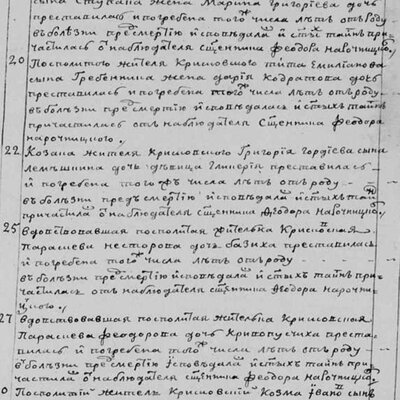 сына Ступака жена Марина Григорїева доч
преставилась и погребена того числа лѣтъ отъ роду
въ болѣзни пресмертїю исповѣдала и стых таинъ при
частилась отъ наблюдателя сщенника феодора нарочницкого
20 Посполитого жителя Крисковского тита емилїанова
сына Гребенника жена дарїя Кодратова дочь
преставилась и погребена того числа лѣтъ отъ роду
въ болѣзни пресмертїю исповѣдалась и стыхъ таинъ
причастилась отъ наблюдателя сщенника феодора
нарочницкого
22 Козака жителя Крисковского Григорїя Гордїева сына
дочь дѣвица Гликерїя преставилась
и погребена того числа лѣтъ отъ роду
въ болѣзни предсмертїю исповѣдала и стыхъ таин
причастила о наблюдателя сщенника феодора нарочницко
25 вдовствовавшая посполитая жителька Крисковская
Параскева несторова доч преставилась
и погребена того числа лѣтъ отъ роду
въ болѣзни пресмертїю исповѣдала и стыхъ таинъ при
частилась отъ наблюдателя сщенника феодора нарочни
цкого
27 вдовствовавшая посполитая жителька Крисковская
Параскева феодорова дочь преста
вилась и погребена того числа лѣтъ отъ роду
въ болѣзни пресмертїю исповѣдала и стыхъ таинъ при
частила о наблюдателя сщенника феодора нарочницко
0 Посполитий житель Крисковскїй Козма їванов сынъ